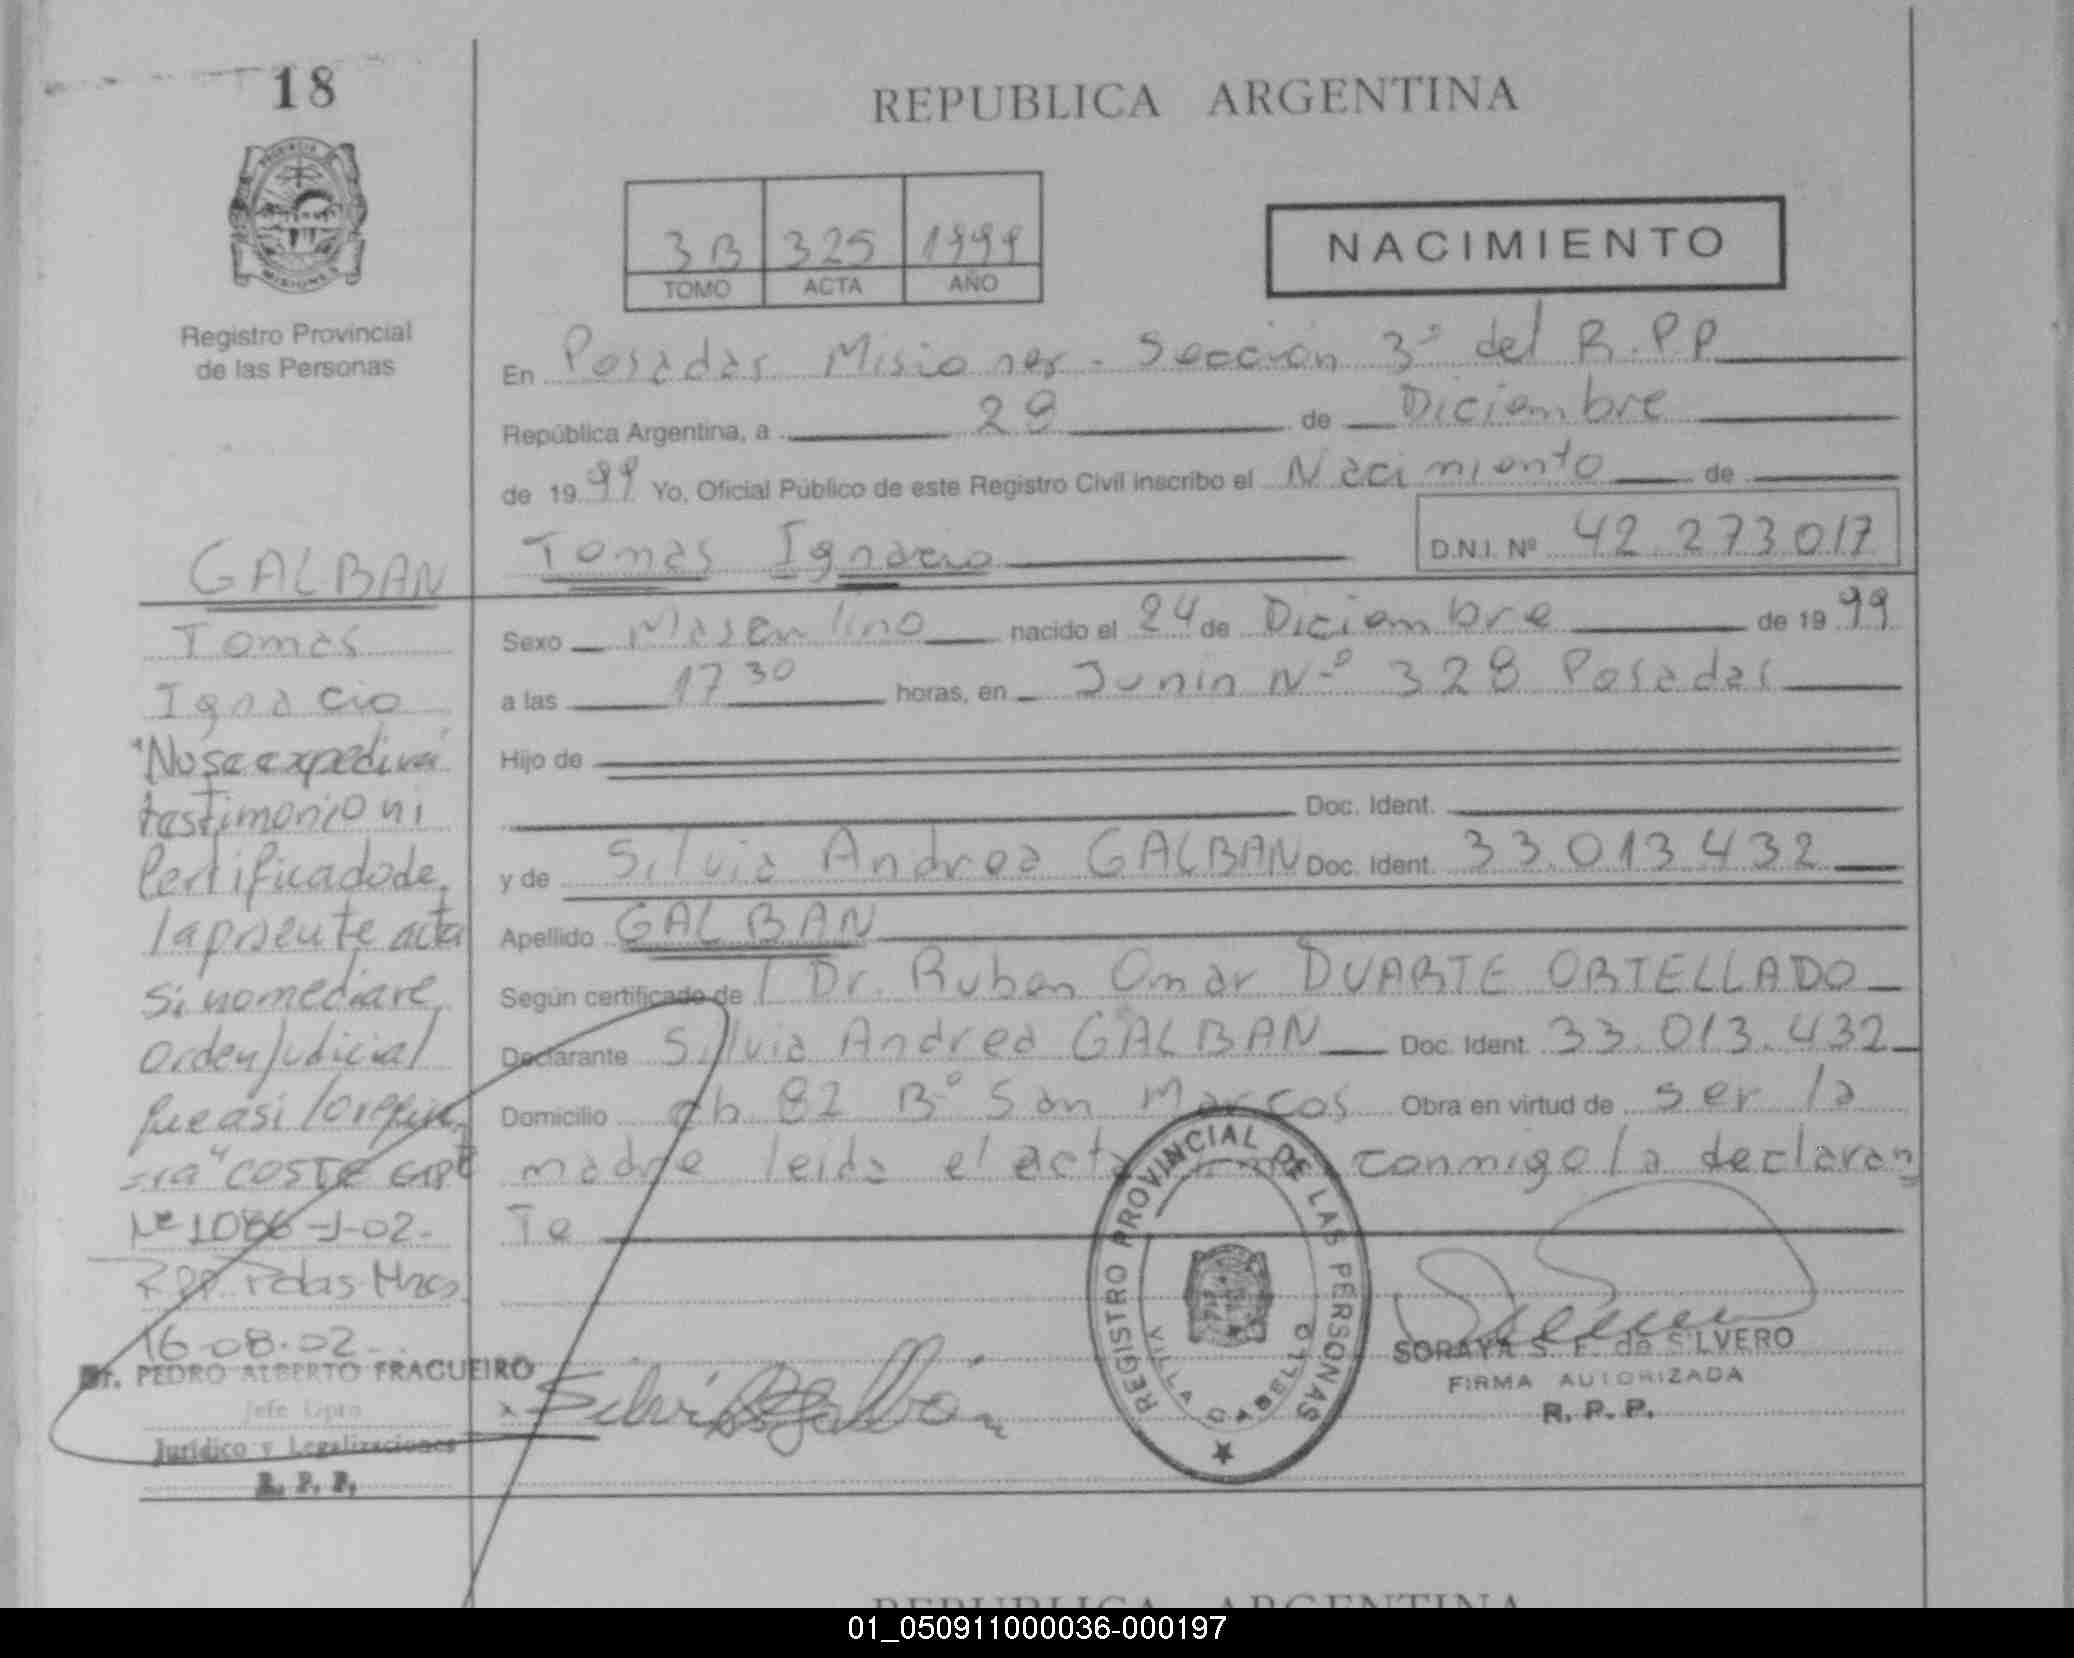 18
REPUBLICA ARGENTINA
PROVINCIA DE
MISIONES
Registro Provincial
de las Personas
3B 325 1999
TOMO ACTA AÑO
NACIMIENTO
En Posadas Misiones - Sección 3ª del R.P.P.
República Argentina, a 29 de Diciembre
de 1999 Yo, Oficial Público de este Registro Civil inscribo el Nacimiento de
Tomas Ignacio D.N.I. Nº 42.273017
Sexo Masculino nacido el 24 de Diciembre de 1999
a las 17 30 horas, en Junin Nº 328 Posadas
Hijo de
Doc. Ident.
y de Silvia Andrea GALBAN Doc. Ident. 33.013.432
Apellido GALBAN
Según certificado de Dr. Ruben Omar DUARTE ORTELLADO
Declarante Silvia Andrea GALBAN Doc. Ident. 33.013.432
Domicilio ch 82 Bº San Marcos Obra en virtud de ser la
madre leida el acta conmigo la declaran
te
GALBAN
Tomas
Ignacio
"No se expedirá
testimonio ni
Certificado de
la presente acta
si no mediare
orden judicial
que asi lo requie
Nº 1086-J-02.
R.P.P. Pdas. Mnes
16-08-02
Dr. PEDRO ALBERTO FRAGUEIRO
Jefe Dpto
Jurídico y Legalizaciones
R. P. P.
Silvia Galbán
REGISTRO PROVINCIAL DE LAS PERSONAS
VILLA CABELLO
SORAYA S. F. de SILVERO
FIRMA AUTORIZADA
R. P. P.
REPUBLICA ARGENTINA
01_050911000036-000197